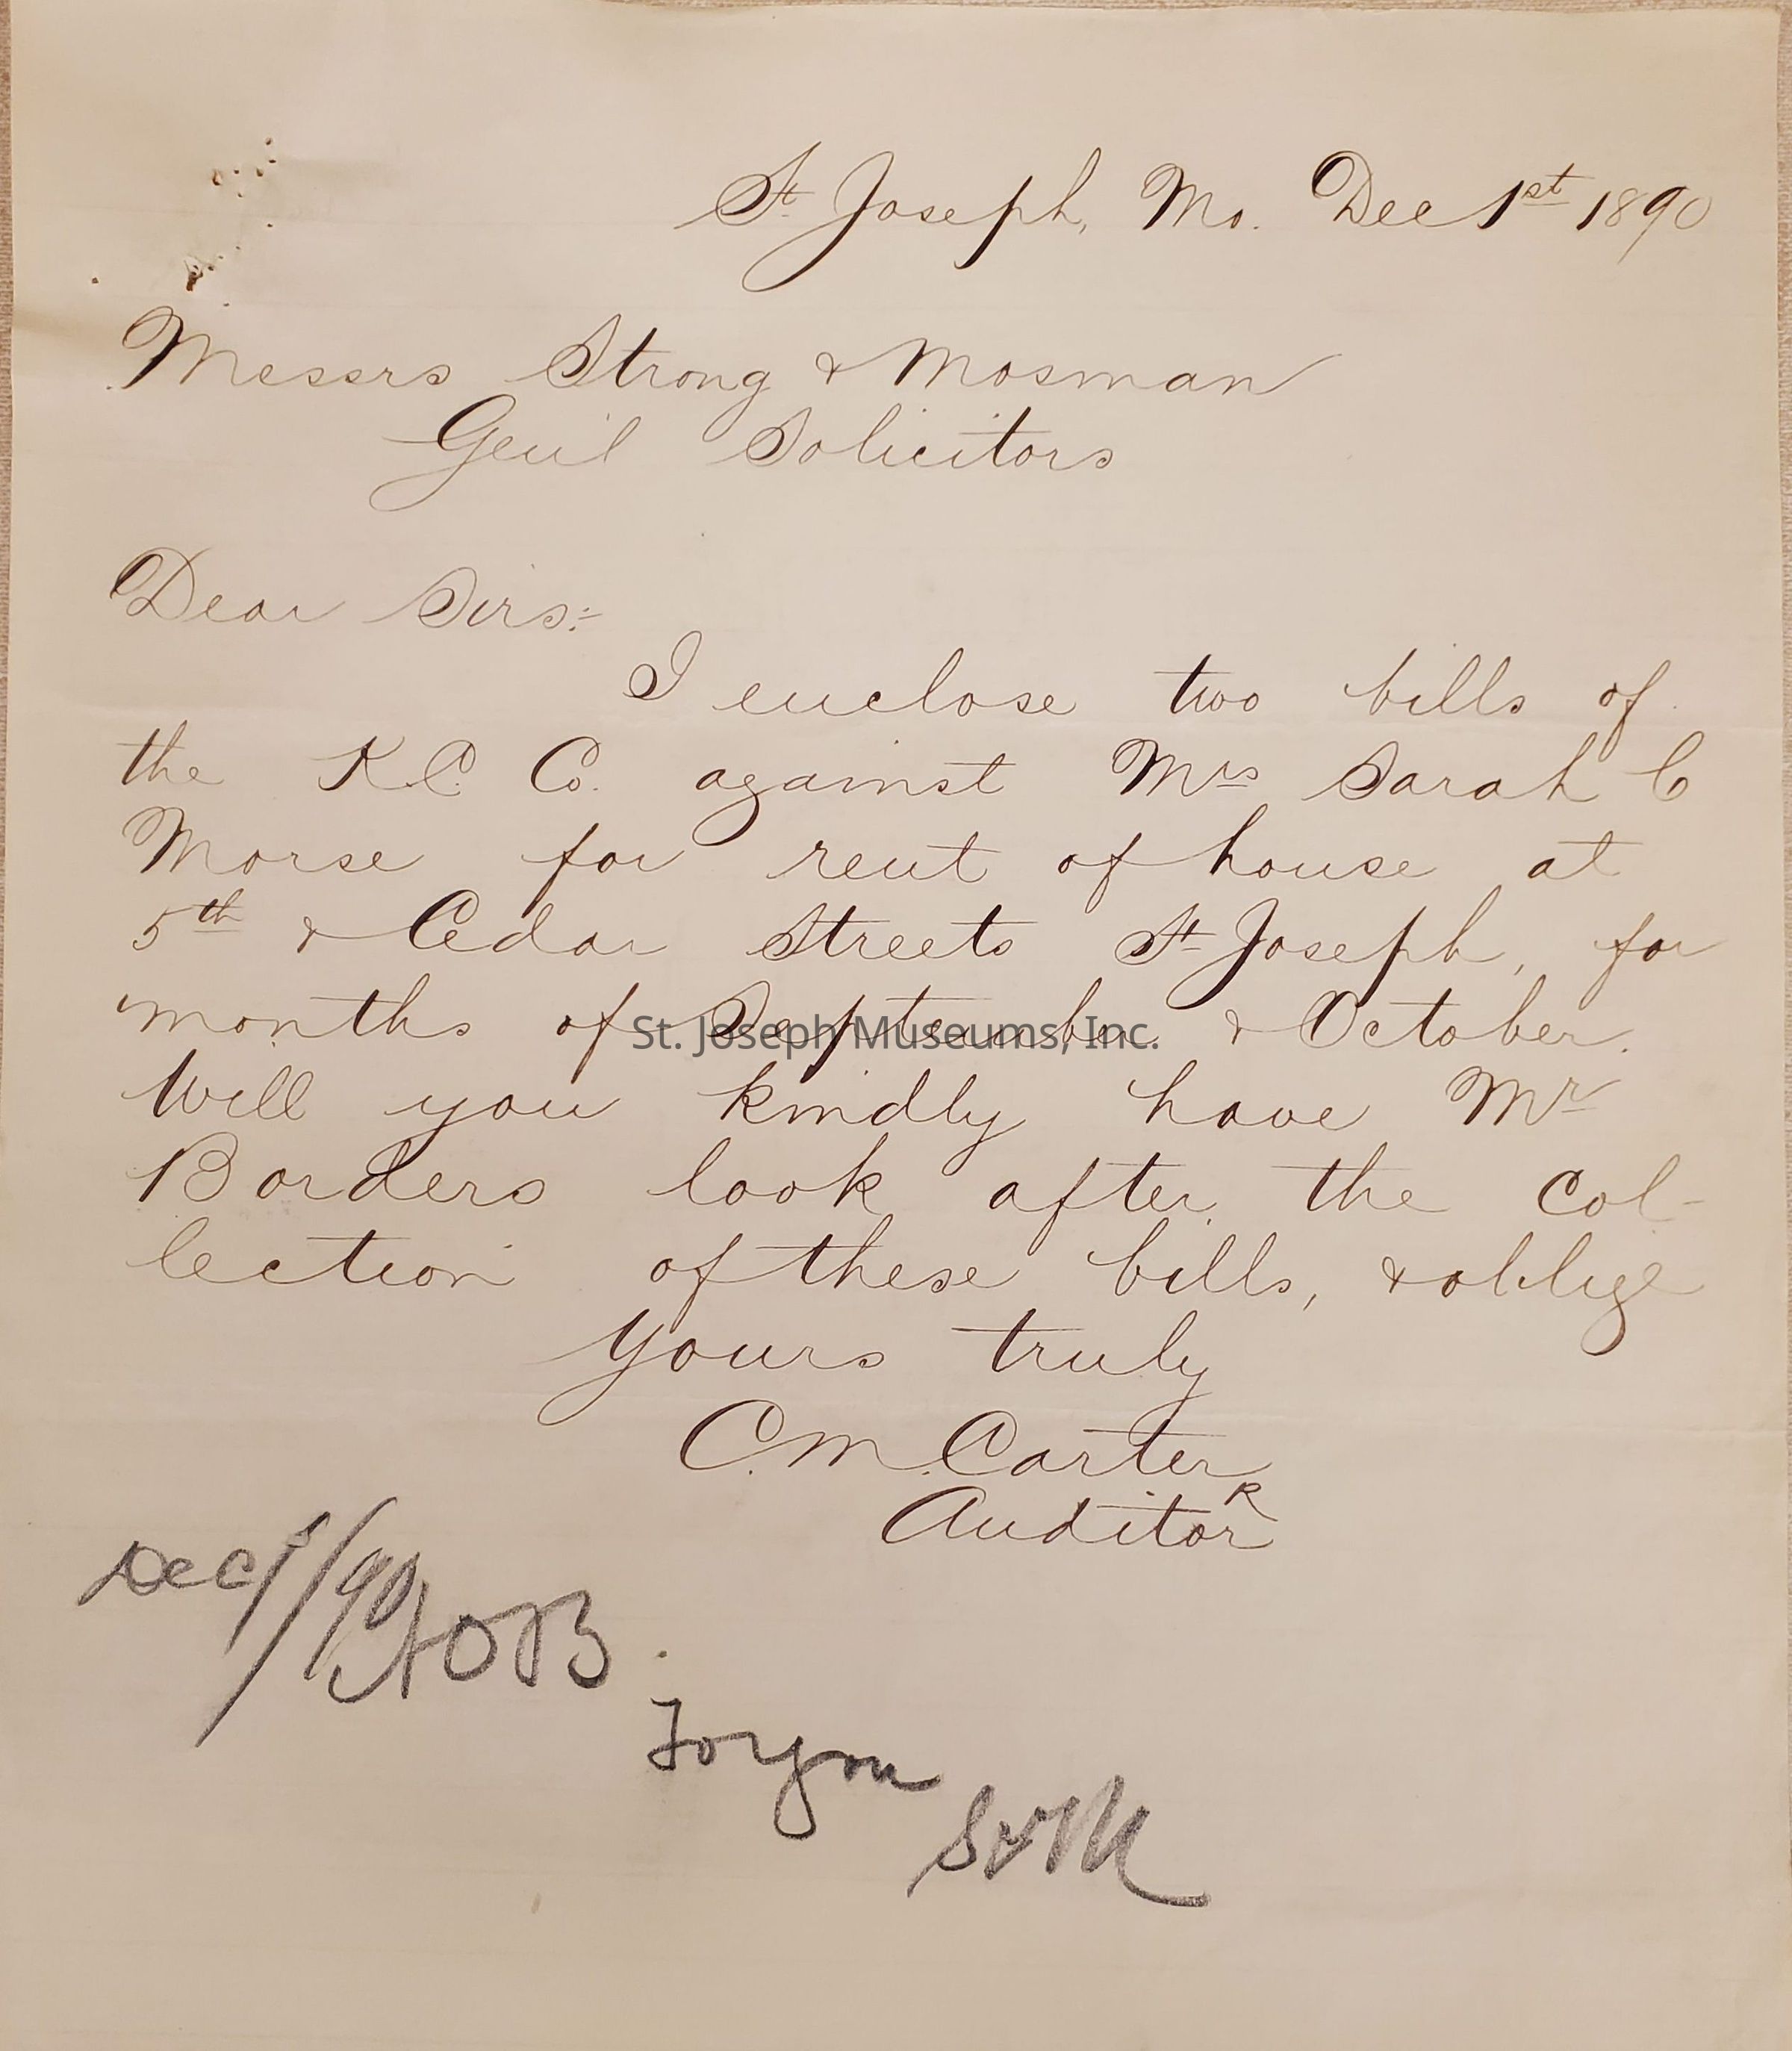 St. Joseph, Mo. Dec 1st 1890
Messrs Strong & Mosman
Genl Solicitors
Dear Sirs:-
I enclose two bills of
the K.C. Co. against Mrs Sarah C
Morse for rent of house at
5th & Cedar Streets St Joseph, for
months of September & October.
St. Joseph Museums, Inc.
Will you kindly have Mr
Borders look after the col-
lection of these bills, & oblige
Yours truly
C. M. Carter
R
Auditor
Dec 1/90
For you
S & M